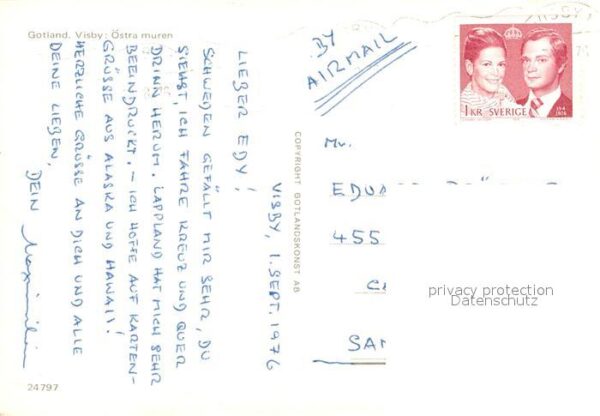 Gotland. Visby: Östra muren
VISBY, 1. SEPT. 1976
LIEBER EDY!
SCHWEDEN GEFÄLLT MIR SEHR, DU
SIEHST, ICH FAHRE KREUZ UND QUER
DRINN HERUM. LAPPLAND HAT MICH SEHR
BEEINDRUCKT. – ICH HOFFE AUF KARTEN-
GRÜSSE AUS ALASKA UND HAWAII!
HERZLICHE GRÜSSE AN DICH UND ALLE
DEINE LIEBEN,
DEIN Maximilian
24797
COPYRIGHT GOTLANDSKONST AB
BY
AIRMAIL
1 KR SVERIGE
19/6
1976
Mr.
EDUA
455
SAN
privacy protection
Datenschutz